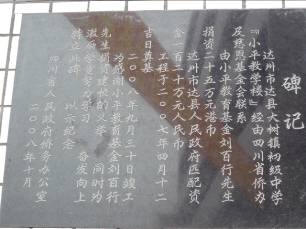 碑记
达州市达县大树镇初级中学
“小平教学楼”经由四川省侨办
及慈恩基金会联系
由小平教育基金刘百行先生
捐资二十五万元港币
达州市达县人民政府匹配资
金一百二十万元人民币
工程于二〇〇七年四月十二
吉日奠基
二〇〇八年九月三十日竣工
为感谢小平教育基金刘百行
先生捐资建校的义举 同时为
激励学童努力学习 奋发向上
特立此碑 以示纪念
四川省人民政府侨务办公室
二〇〇八年十月